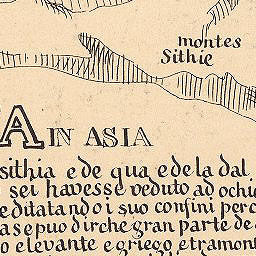 montes
Sithie
A IN ASIA
sithia e de qua e de la dal
sei havesse veduto ad ochi
e ditatando i suo confini perc
a se puo dir che gran parte de
o e levante e griego e tramont